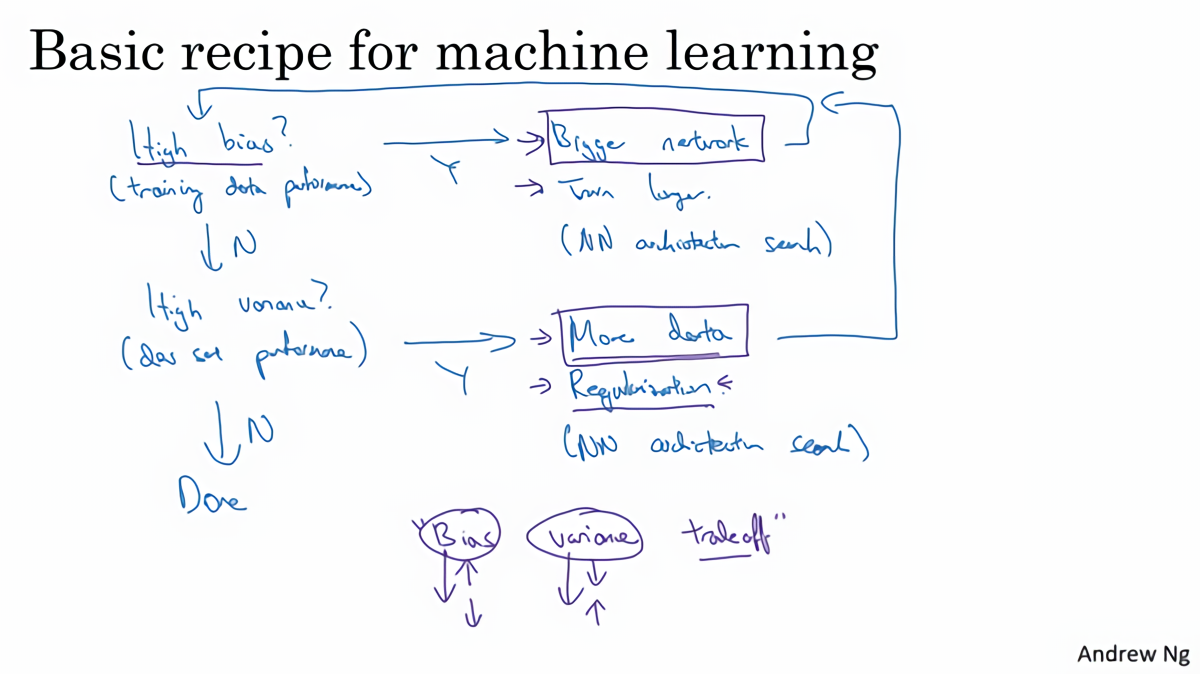 Basic recipe for machine learning
High bias?
(training data performance)
Y
→ Bigger network
→ Train longer.
(NN architecture search)
↓ N
High variance?
(dev set performance)
Y
→ More data
→ Regularization
(NN architecture search)
↓ N
Done
"Bias variance tradeoff"
Andrew Ng